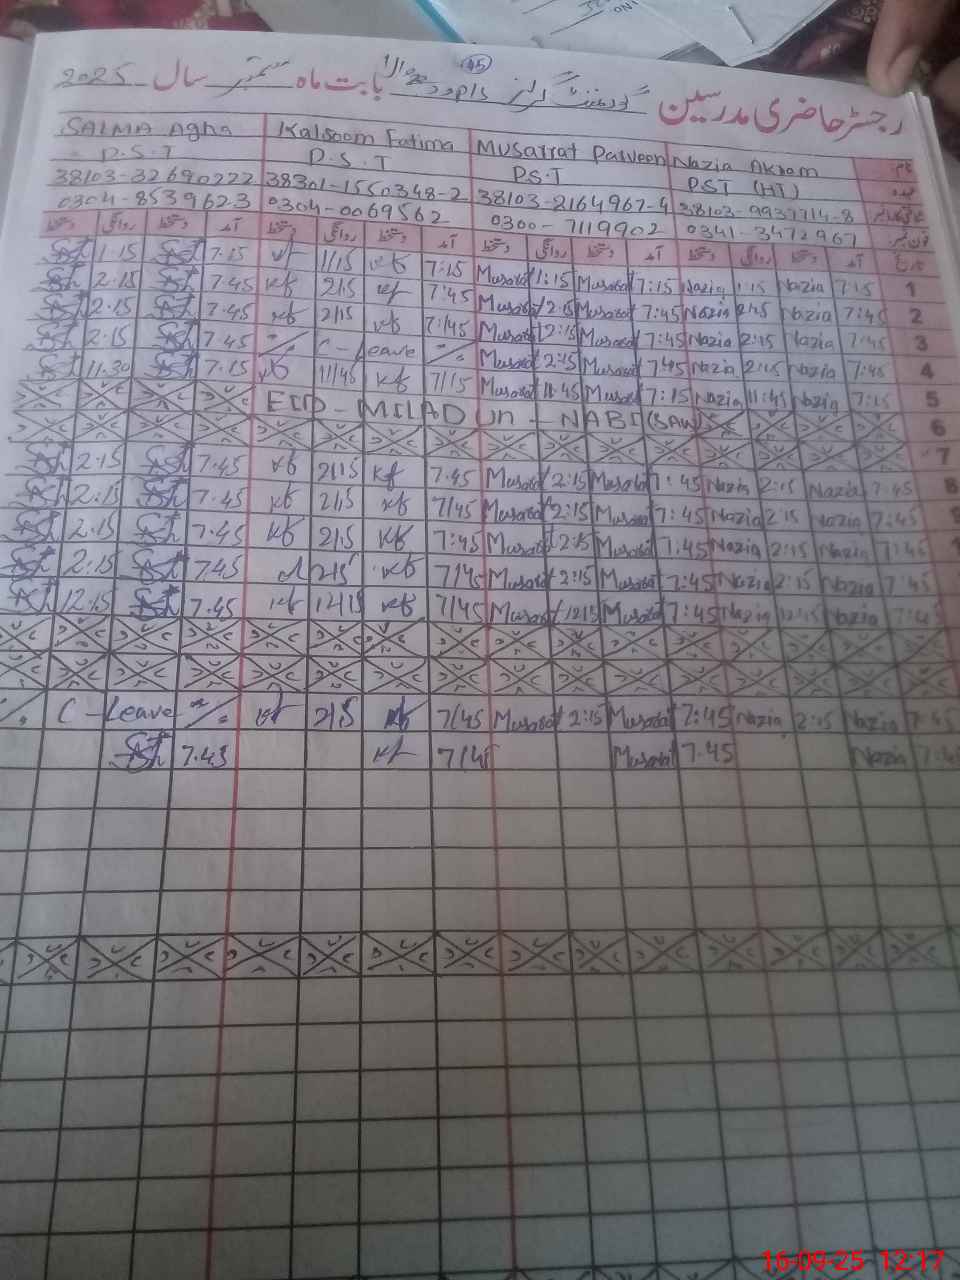 رجسٹر حاضری مدرسین گورنمنٹ گرلز بابت ماہ ستمبر سال 2025
45
SALMA Agha Kalsoom Fatima Musarrat Parveen Nazia Akram
P.S.T P.S.T P.S.T PST (HT)
38103-32690222 38301-1550348-2 38103-2164967-4 38103-9937714-8
0304-8539623 0304-0069562 0300-7119902 0341-3472967
دستخط روانگی دستخط آمد دستخط روانگی دستخط آمد دستخط روانگی دستخط آمد دستخط روانگی دستخط آمد تاریخ
1.15 7.15 1/15 kf 7:15 Musarat 1:15 Musarat 7:15 Nazia 1:15 Nazia 7:15 1
2.15 7.45 kf 2/15 kf 7:45 Musarat 2:15 Musarat 7:45 Nazia 2:15 Nazia 7:45 2
2.15 7.45 kf 2/15 kf 7:/45 Musarat 2:15 Musarat 7:45 Nazia 2:15 Nazia 7:45 3
2:15 7.45 C-Leave Musarat 2:15 Musarat 7:45 Nazia 2:15 Nazia 7:45 4
11.30 7.15 kf 11/45 kf 7/15 Musarat 11:45 Musarat 7:15 Nazia 11:45 Nazia 7:15 5
EID-MILAD UN-NABI (SAW) 6
7
2:15 7.45 kf 2/15 kf 7.45 Musarat 2:15 Musarat 7:45 Nazia 2:15 Nazia 7:45 8
2:15 7.45 kf 2/15 kf 7/45 Musarat 2:15 Musarat 7:45 Nazia 2:15 Nazia 7:45
2.15 7.45 kf 2/15 kf 7:45 Musarat 2:15 Musarat 7:45 Nazia 2:15 Nazia 7:45
2:15 7.45 2/15 kf 7/45 Musarat 2:15 Musarat 7:45 Nazia 2:15 Nazia 7:45
12:15 7.45 kf 12/15 kf 7/45 Musarat 12:15 Musarat 7:45 Nazia 12:15 Nazia 7:45
C-Leave kf 2/15 kf 7/45 Musarat 2:15 Musarat 7:45 Nazia 2:15 Nazia 7:45
7.45 kf 7/45 Musarat 7.45 Nazia 7:45
16-09-25 12:17